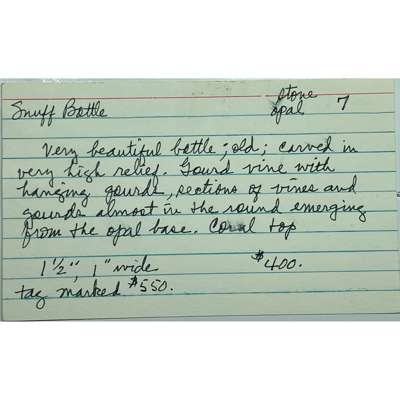 stone
Snuff Bottle opal 7
Very beautiful bottle; old; carved in
very high relief. Gourd vine with
hanging gourds, sections of vines and
gourds almost in the round emerging
from the opal base. Coral top
1 1/2", 1" wide $400.
tag marked $550.